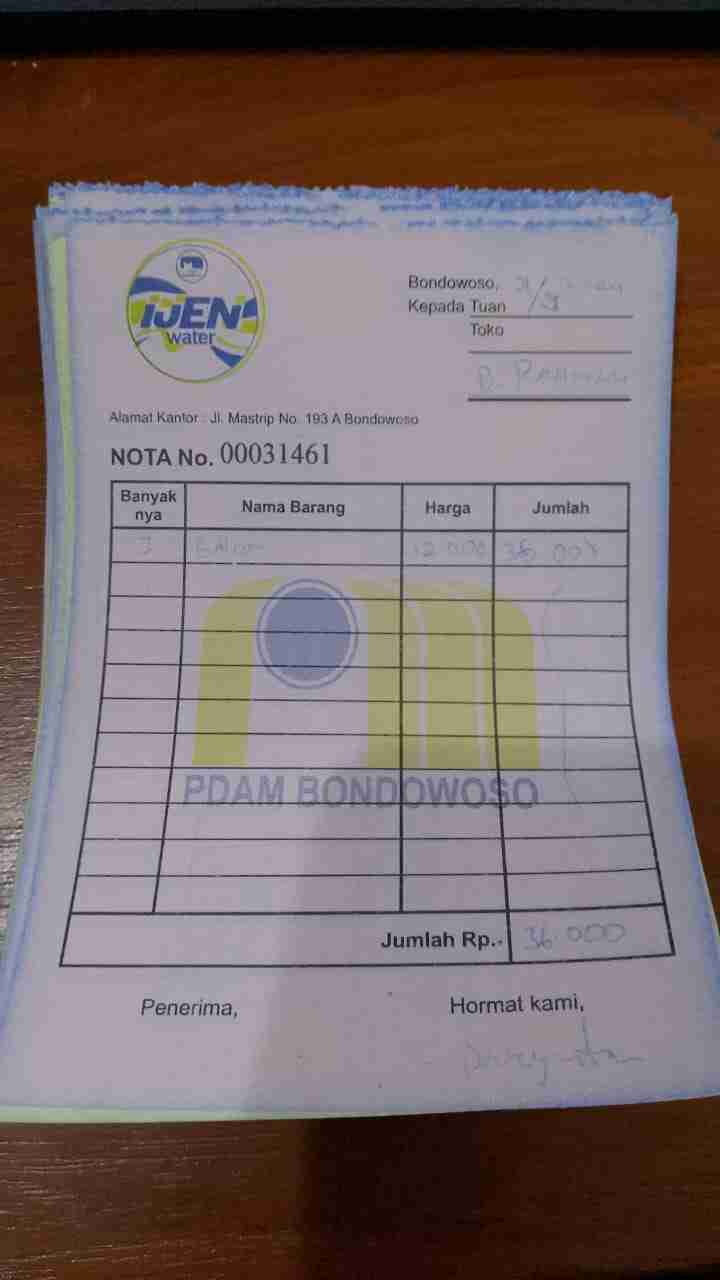 IJEN
water
Bondowoso,
Kepada Tuan
Toko
Alamat Kantor : Jl. Mastrip No. 193 A Bondowoso
NOTA No. 00031461
Banyak nya Nama Barang Harga Jumlah
3 12.000 36.000
PDAM BONDOWOSO
Jumlah Rp.- 36.000
Penerima, Hormat kami,